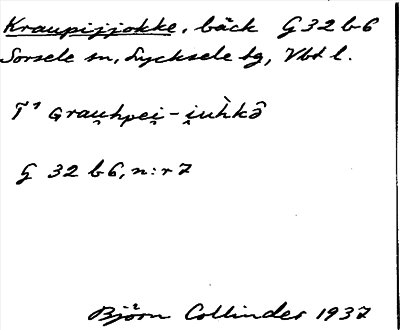 Kraupijjokke, bäck G 32 b6
Sorsele sn, Lycksele tg, Vbt l.
T¹ Grau̯hpei̯-i̯uh̀kô
G 32 b6, n:r 7
Björn Collinder 1937